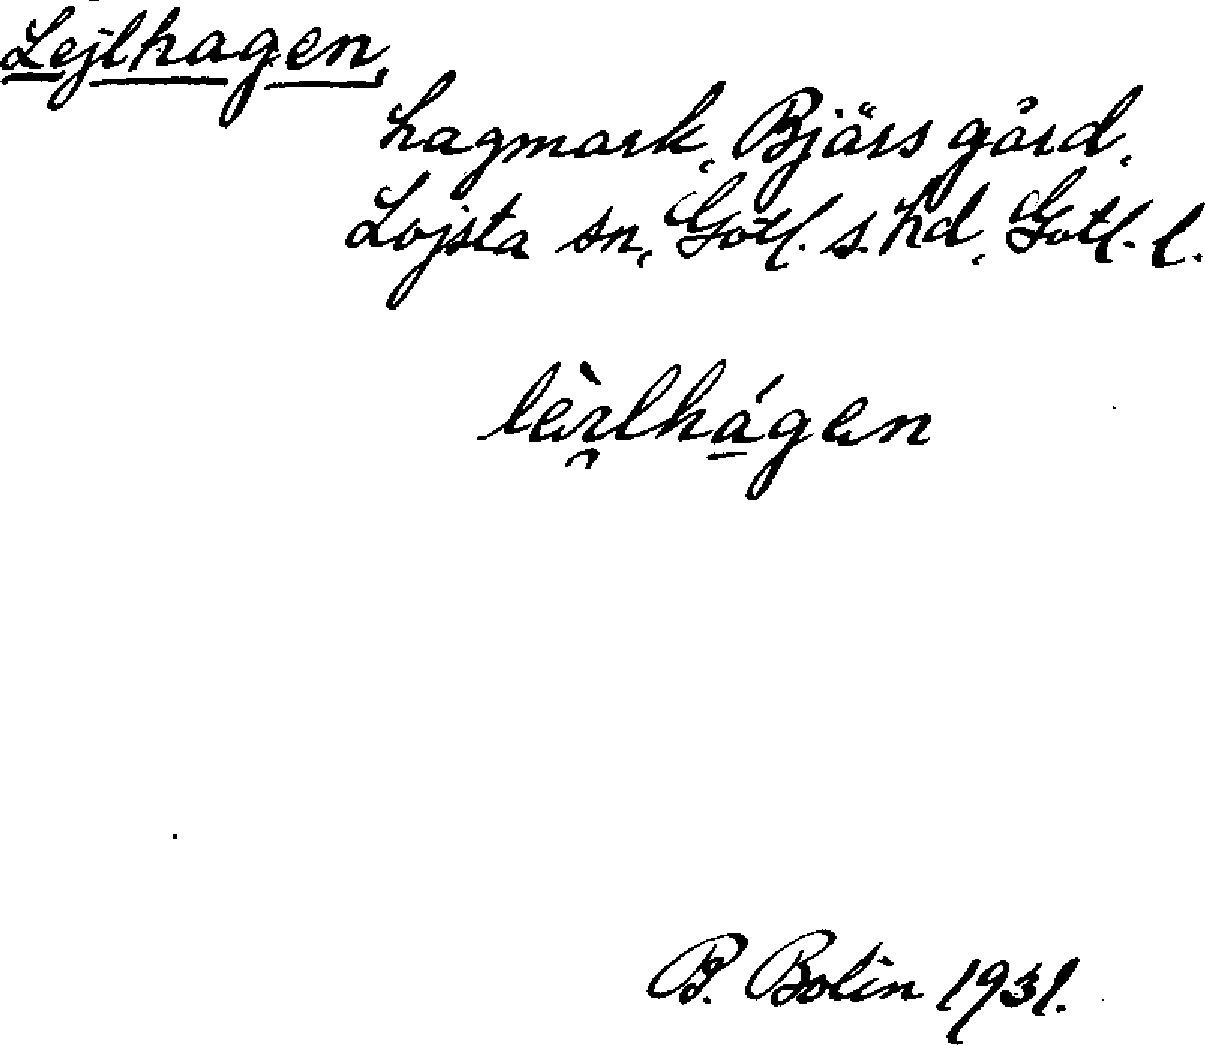 Lejlhagen,
hagmark, Bjärs gård,
Lojsta sn, Gotl. s. hd, Gotl. l.
B. Bolin 1931.